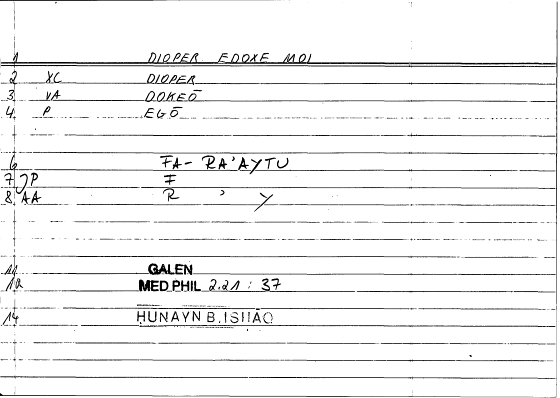 1 DIOPER EDOXE MOI
2 XC DIOPER
3 VA DOKEŌ
4 P EGŌ
6 FA- RA'AYTU
7 JP F
8 AA R ' Y
11 GALEN
12 MED PHIL 2.21 : 37
14 HUNAYN B. ISHAQ